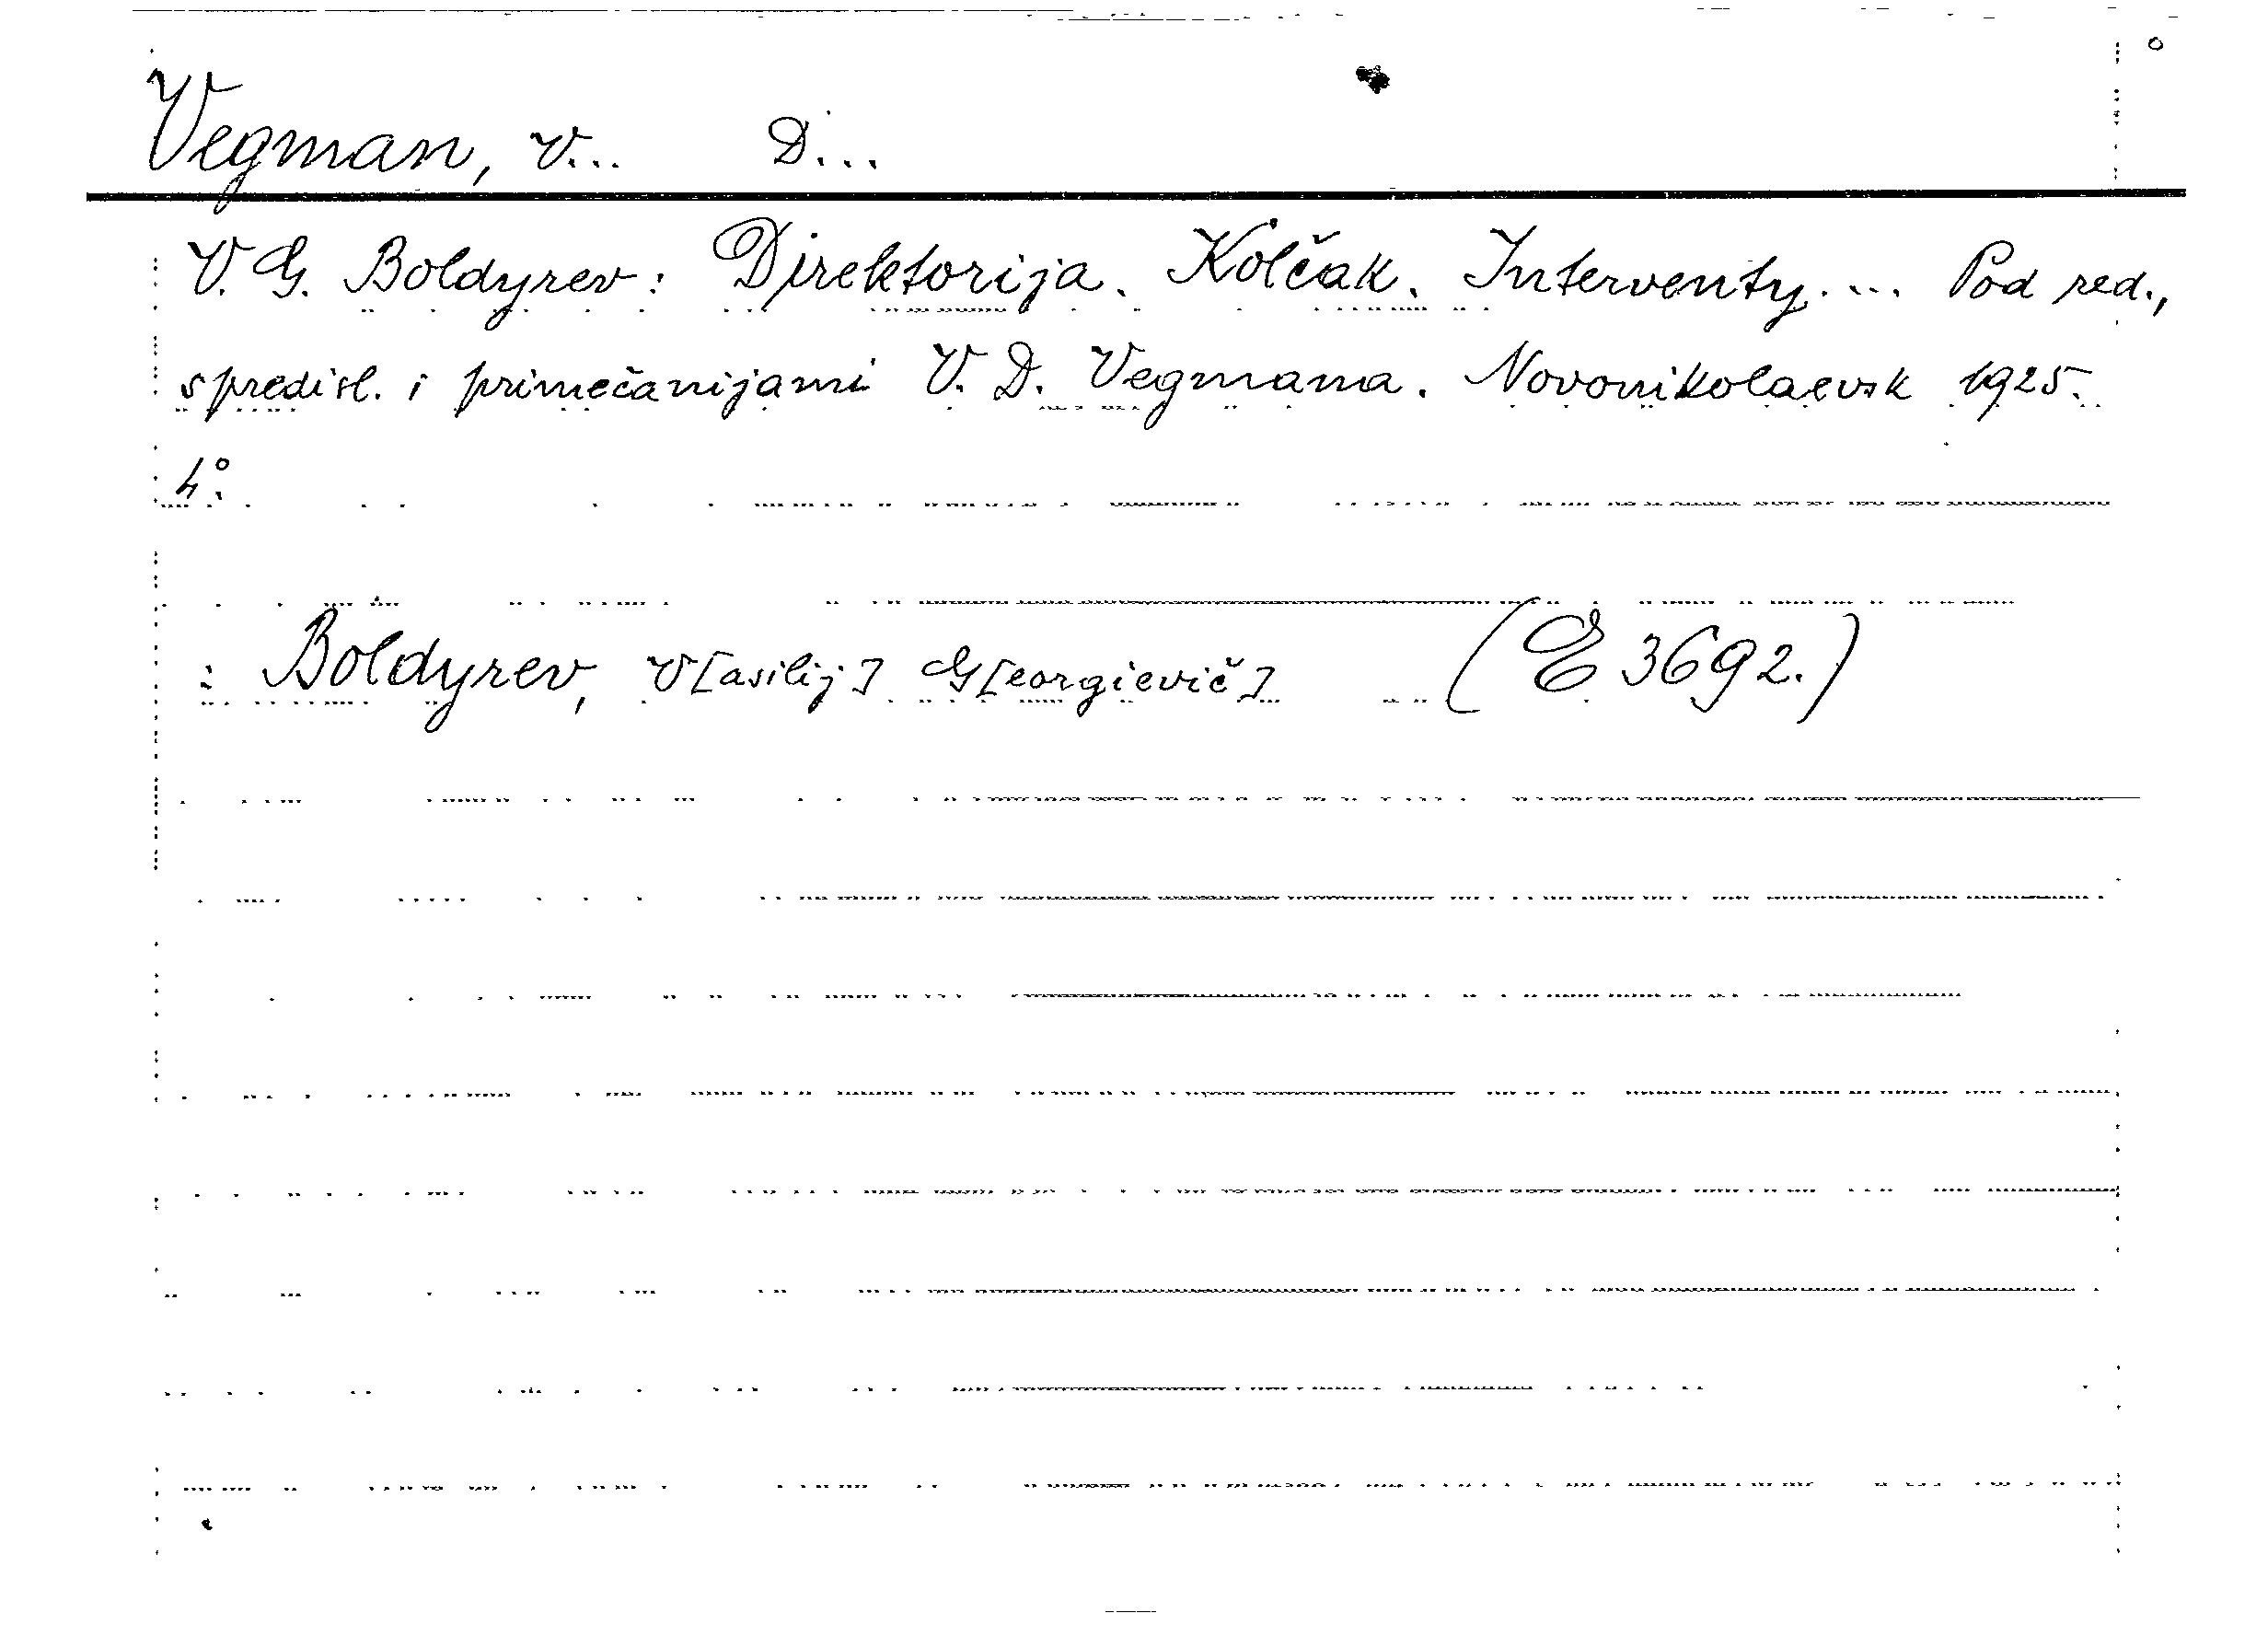 Vegman, V... D...
V. G. Boldyrev: Direktorija. Kolčak. Interventy. ... Pod red.,
s predisl. i primečanijami V. D. Vegmana. Novonikolaevsk 1925.
4°.
: Boldyrev, V[asilij] G[eorgievič] (E 3692.)